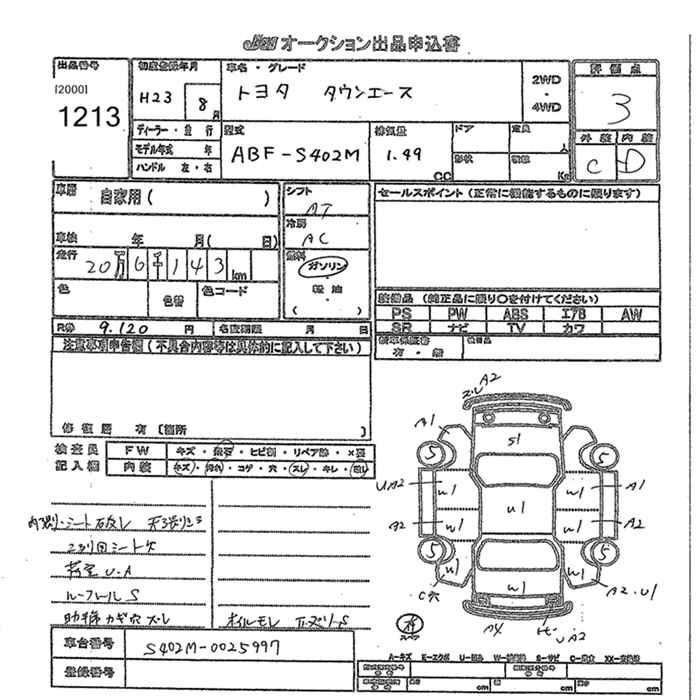 オークション出品申込書
出品番号
[2000]
1213
初度登録年月
H23 8月
車名・グレード
トヨタ タウンエース
2WD
・
4WD
評価点
3
外装 内装
C D
ディーラー・並行
モデル年式 年
ハンドル 左・右
型式
ABF-S402M
排気量
1.49
CC
ドア
定員
人
形状
積載
Kg
車歴
自家用( )
車検 年 月( 日)
走行
20万6千143km
色
色替
色コード
シフト
AT
冷房
AC
燃料
ガソリン
・
軽油
( )
セールスポイント(正常に機能するものに限ります)
装備品(純正品に限り○を付けてください)
PS PW ABS エアB AW
SR ナビ TV カワ
新車保証書
有・無
R券 9.120 円
名変期限 月 日
注意事項申告欄(不具合内容等は具体的に記入して下さい)
修復歴 有〔箇所 〕
検査員
記入欄
FW キズ・飛石・ヒビ割・リペア跡・×要
内装 キズ・汚れ・コゲ・穴・スレ・キレ・
2列目シート欠
荷室U.A
オイルモレ
A2
A1
S1
5 5
UA2 W1 U1 W1 A1
A2 W1 W1 A2
5 5
W1 W1 W1
C穴
A2.U1
A4
UA2
スペア
車台番号 S402M-0025997
登録番号
A-キズ E-エクボ U-凹み W-補修跡 S-サビ C-腐食 XX-交換済
cm cm cm